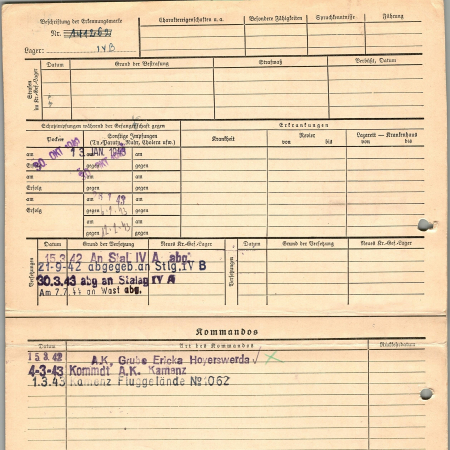 Beschriftung der Erkennungsmarke
Nr.
Lager: IVB
Charaktereigenschaften u. a.
Besondere Fähigkeiten
Sprachkenntnisse
Führung
Strafen im Kr.-Gef.-Lager
Datum
Grund der Bestrafung
Strafmaß
Verbüßt, Datum
Schutzimpfungen während der Gefangenschaft gegen
Erkrankungen
Pocken
Sonstige Impfungen
(Ty.-Paraty., Ruhr, Cholera usw.)
Krankheit
Revier
von bis
Lazarett – Krankenhaus
von bis
am 13. JAN. am
30. OKT.
Erfolg
gegen gegen
am am am
Erfolg
gegen gegen
am am
gegen gegen
Versetzungen
Datum
Grund der Versetzung
Neues Kr.-Gef.-Lager
Versetzungen
Datum
Grund der Versetzung
Neues Kr.-Gef.-Lager
15.3.42 An Stal IV A abg.
21-9-42 abgegeb. an Stlg. IV B
30.3.43 abg an Stalag IV A
Am 7.7. an Wast abg.
Kommandos
Datum
Art des Kommandos
Rückkehrdatum
15 3. 42 A.K. Grube Ericka Hoyerswerda
4-3-43 Kommdt A.K. Kamenz
1.3.43 Kamenz Fluggelände № 1062